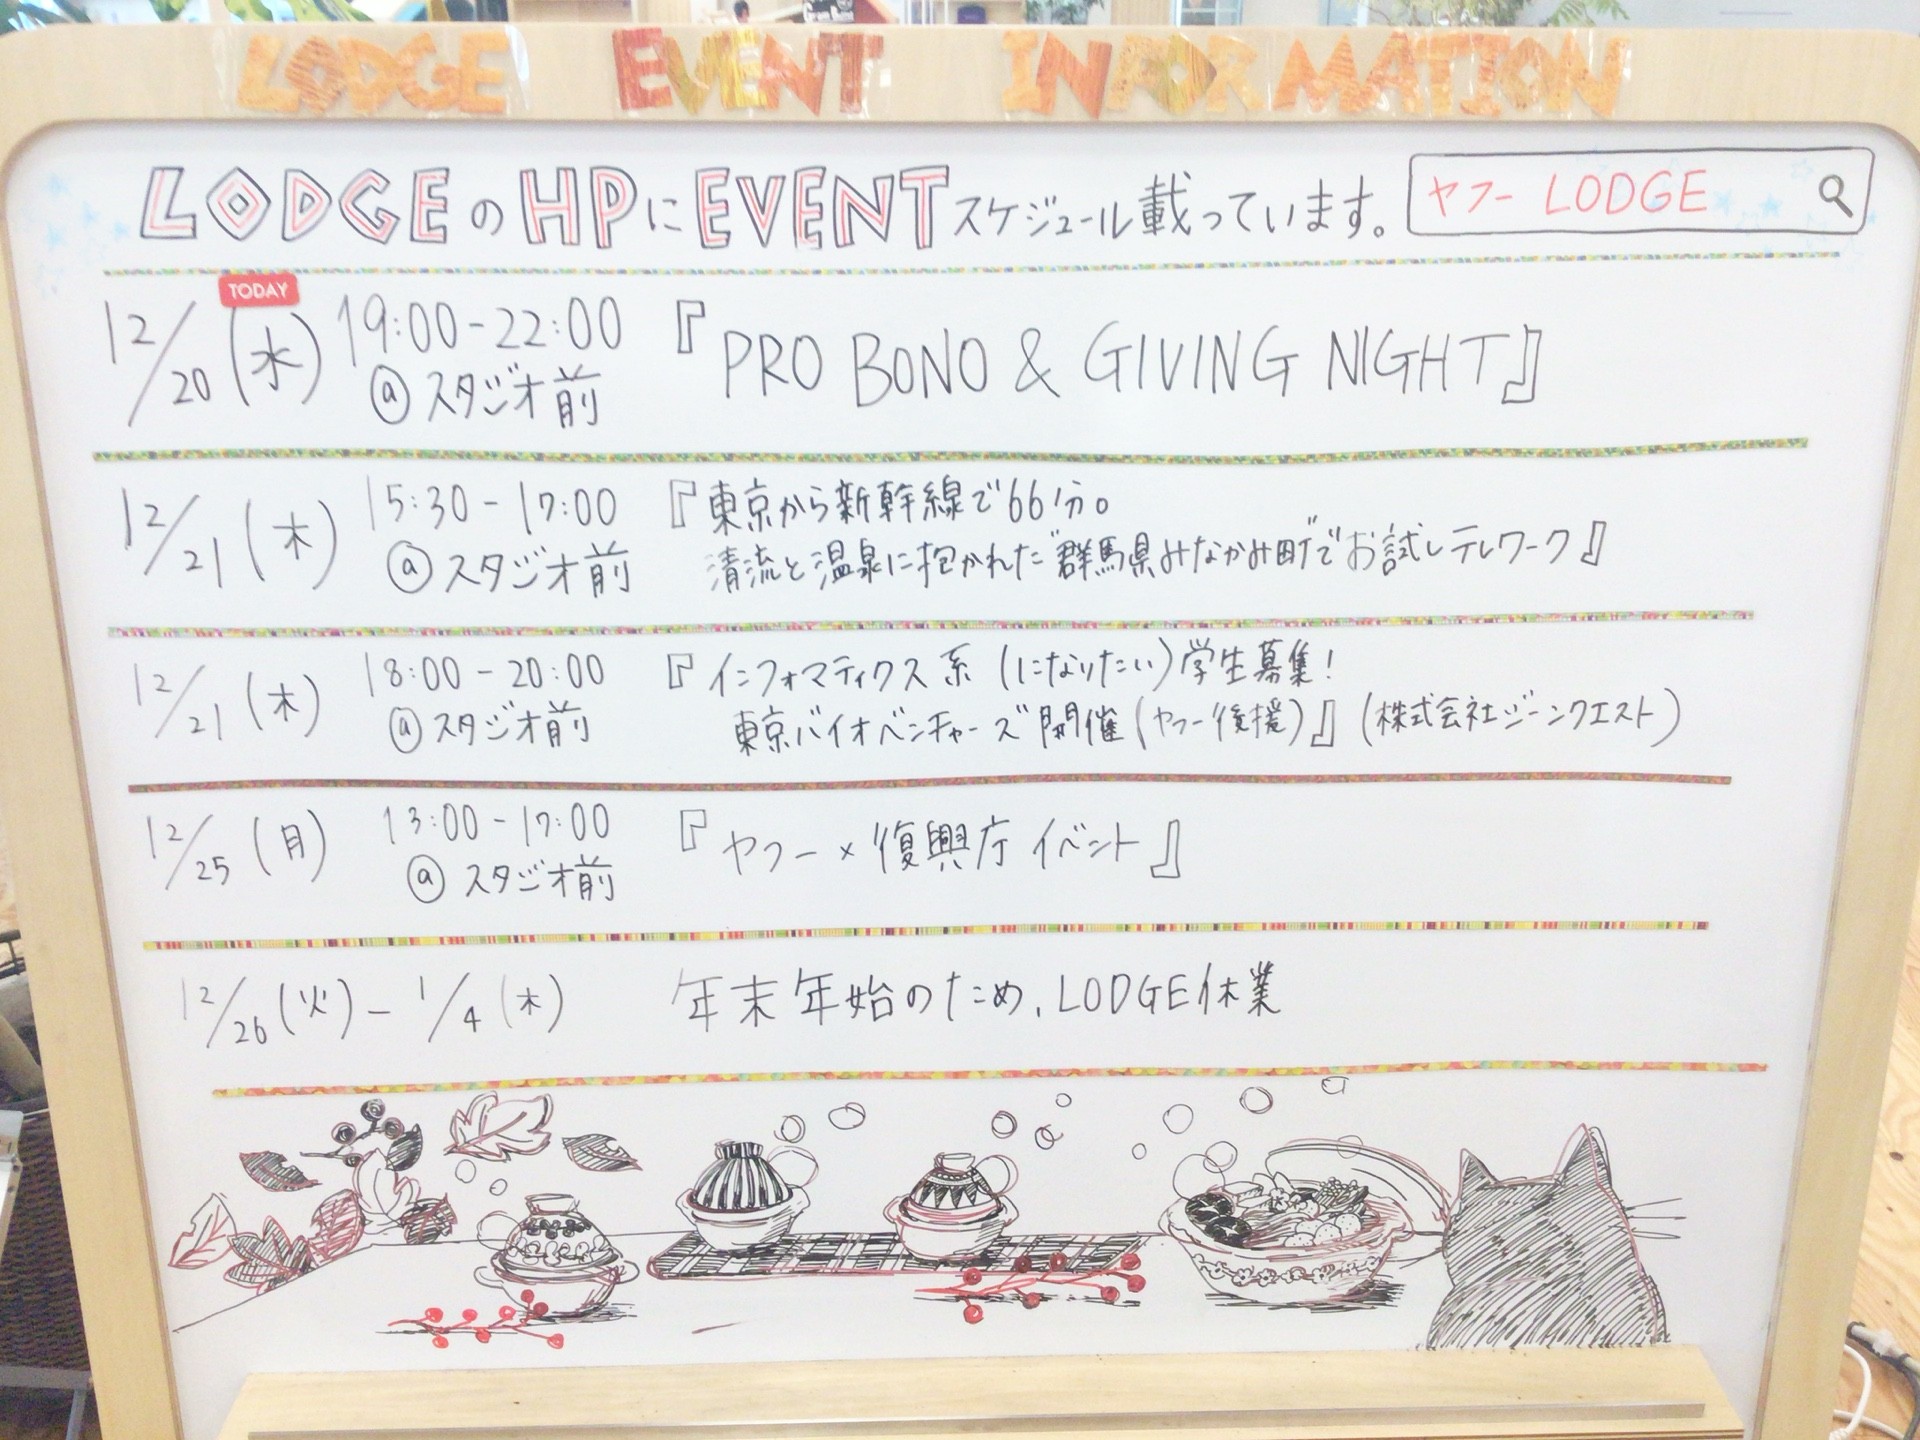 LODGE EVENT INFORMATION
LODGEのHPにEVENTスケジュール載っています。 ヤフー LODGE
TODAY
12/20(水) 19:00-22:00 『PRO BONO & GIVING NIGHT』
@スタジオ前
12/21(木) 15:30-17:00 『東京から新幹線で66分。
@スタジオ前 清流と温泉に抱かれた群馬県みなかみ町でお試しテレワーク』
12/21(木) 18:00-20:00 『インフォマティクス系(になりたい)学生募集!
@スタジオ前 東京バイオベンチャーズ開催(ヤフー後援)』(株式会社ジーンクエスト)
12/25(月) 13:00-17:00 『ヤフー×復興庁イベント』
@スタジオ前
12/26(火)-1/4(木) 年末年始のため、LODGE休業